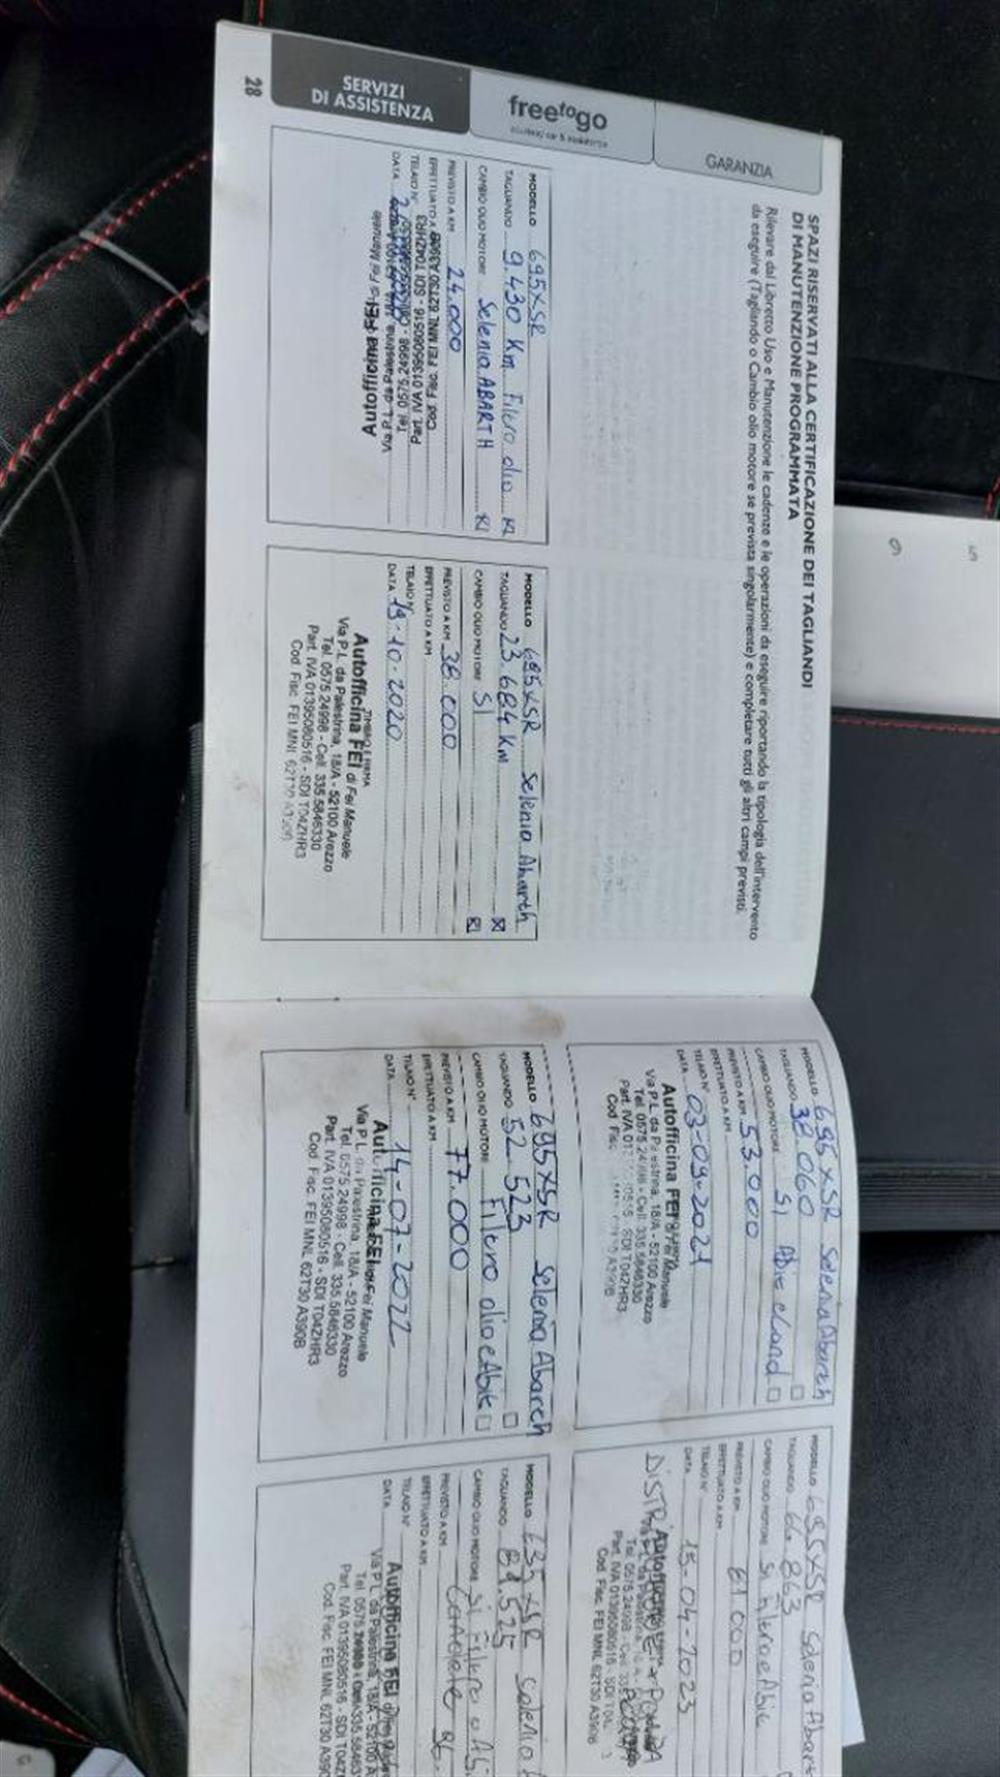 28
SERVIZI
DI ASSISTENZA
freetogo
GARANZIA
SPAZI RISERVATI ALLA CERTIFICAZIONE DEI TAGLIANDI
DI MANUTENZIONE PROGRAMMATA
Rilevare dal Libretto Uso e Manutenzione le cadenze e le operazioni da eseguire riportando la tipologia dell'intervento
da eseguire (Tagliando o Cambio olio motore se prevista singolarmente) e completare tutti gli altri campi previsti.
MODELLO 695XSR
TAGLIANDO 9.430 Km Filtro olio
CAMBIO OLIO MOTORE Selenia ABARTH
PREVISTO A KM 24.000
EFFETTUATO A KM
TELAIO N°
DATA
Autofficina FEI di Fei Manuele
Via P.L. da Palestrina, 18/A - 52100 Arezzo
Tel. 0575 24998 - Cell. 335.5846330
Part. IVA 01395080516 - SDI T04ZHR3
Cod. Fisc. FEI MNL 62T30 A390B
MODELLO 695XSR Selenia Abarth
TAGLIANDO 23.684 Km
CAMBIO OLIO MOTORE SI
PREVISTO A KM 38.000
EFFETTUATO A KM
TELAIO N°
DATA 19-10-2020
TIMBRO E FIRMA
Autofficina FEI di Fei Manuele
Via P.L. da Palestrina, 18/A - 52100 Arezzo
Tel. 0575 24998 - Cell. 335.5846330
Part. IVA 01395080516 - SDI T04ZHR3
Cod. Fisc. FEI MNL 62T30 A390B
MODELLO 695XSR Selenia Abarth
TAGLIANDO 38.060
CAMBIO OLIO MOTORE SI
PREVISTO A KM 53.000
EFFETTUATO A KM
TELAIO N°
DATA 03-09-2021
Autofficina FEI di Fei Manuele
Via P.L. da Palestrina, 18/A - 52100 Arezzo
Tel. 0575 24998 - Cell. 335.5846330
SDI T04ZHR3
Cod Fisc.
MODELLO 695XSR Selenia Abarth
TAGLIANDO 52.523
CAMBIO OLIO MOTORE Filtro olio
PREVISTO A KM 77.000
EFFETTUATO A KM
TELAIO N°
DATA 14-07-2022
Autofficina FEI di Fei Manuele
Via P.L. da Palestrina, 18/A - 52100 Arezzo
Tel. 0575 24998 - Cell. 335.5846330
Part. IVA 01395080516 - SDI T04ZHR3
Cod. Fisc. FEI MNL 62T30 A390B
MODELLO 695XSR Selenia Abart
TAGLIANDO 66.863
CAMBIO OLIO MOTORE SI filtro
PREVISTO A KM 81.000
EFFETTUATO A KM
TELAIO N°
DATA 15-04-2023
Autofficina
Part. IVA 01395080516
Cod. Fisc. FEI MNL 62T30 A390B
MODELLO 695XSR Selenia
TAGLIANDO 81.525
CAMBIO OLIO MOTORE SI Filtro
PREVISTO A KM
EFFETTUATO A KM
TELAIO N°
DATA
Autofficina FEI
Via P.L. da Palestrina, 18/A - 52100
Part. IVA 01395080516 - SDI T04Z
Cod. Fisc. FEI MNL 62T30 A390